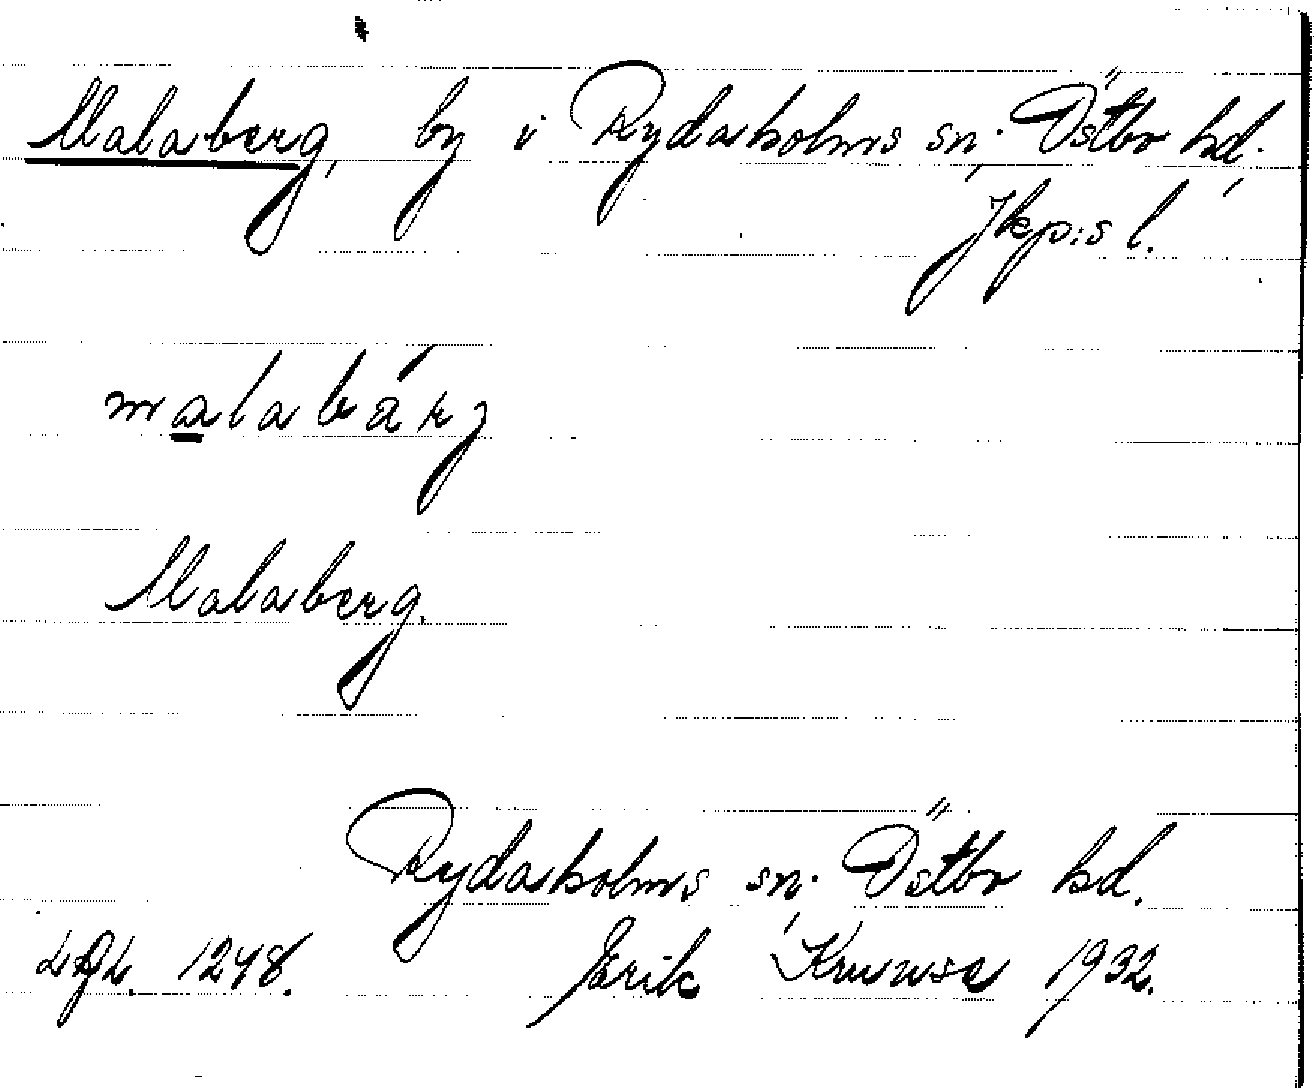 Malaberg, by i Rydaholms sn, Östbo hd.
Jkp:s l.
malabärj
Malaberg.
Rydaholms sn. Östbo hd.
1248. Erik 1932.